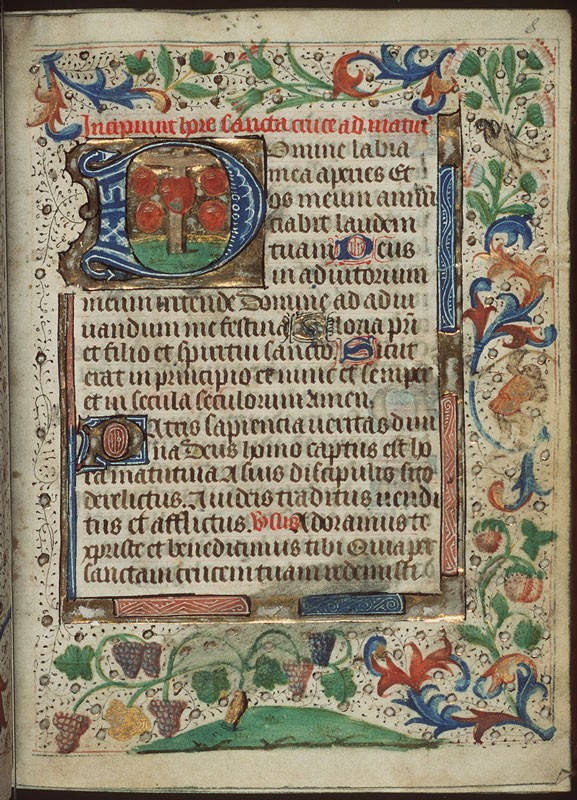 8
Incipiunt hore sancta cruce ad matut'
Domine labia
mea aperies Et
os meum annū
ciabit laudem
tuam Deus
in adiutorium
meum intende Domine ad adiu
uandum me festina Gloria pri
et filio et spiritui sancto Sicut
erat in principio et nunc et semper
et in secula seculorum Amen.
Patris sapiencia ueritas diui
na Deus homo captus est ho
ra matutina A suis discipulis cito
derelictus. A iudeis traditus uendi
tus et afflictus. Adoramus te
xpriste et benedicimus tibi Quia per
sanctam crucem tuam redemisti